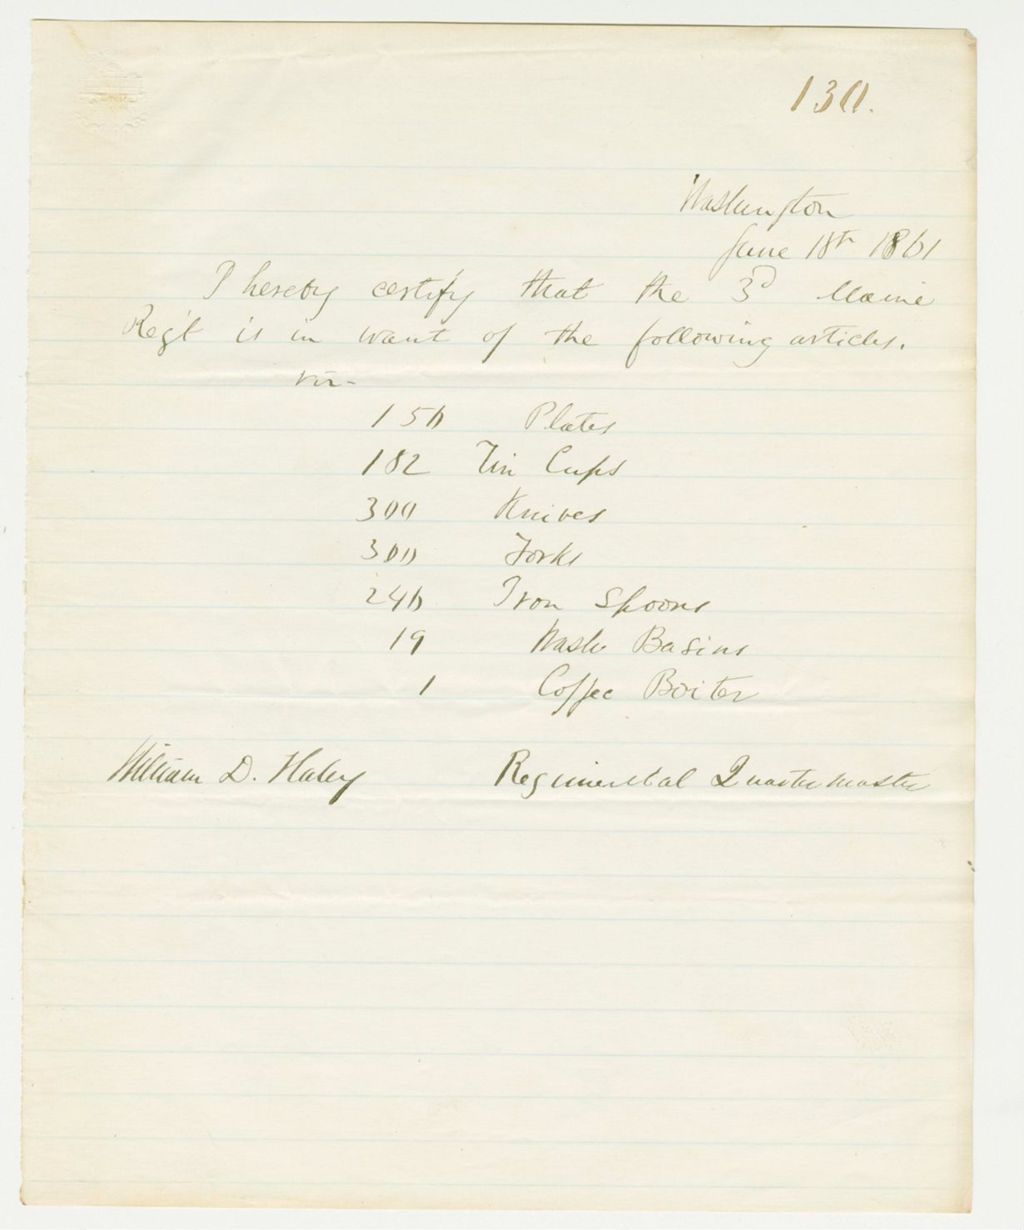 130.
Washington
June 18th 1861
I hereby certify that the 3D Maine
Reg't is in want of the following articles.
viz-
150 Plates
182 Tin Cups
300 Knives
300 Forks
240 Iron Spoons
19 Wash Basins
1 Coffee Boiler
William D. Haley Regimental Quartermaster